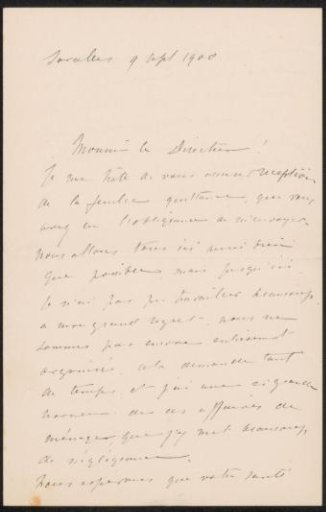 9 sept 1900
Monsieur le Directeur!
Je me hâte de vous réception
de la feuille que vous
avez eu l'obligeance de m'envoyer
Nous allons tous ici aussi bien
que possible mais jusqu'ici
je n'ai pas pu travailler beaucoup
à mon grand regret. nous ne
sommes pas encore entièrement
organisés, cela demande tant
de temps et j'ai une si grande
horreur de ces affaires de
ménage que j'y met beaucoup
de négligence.
Nous espérons que votre santé